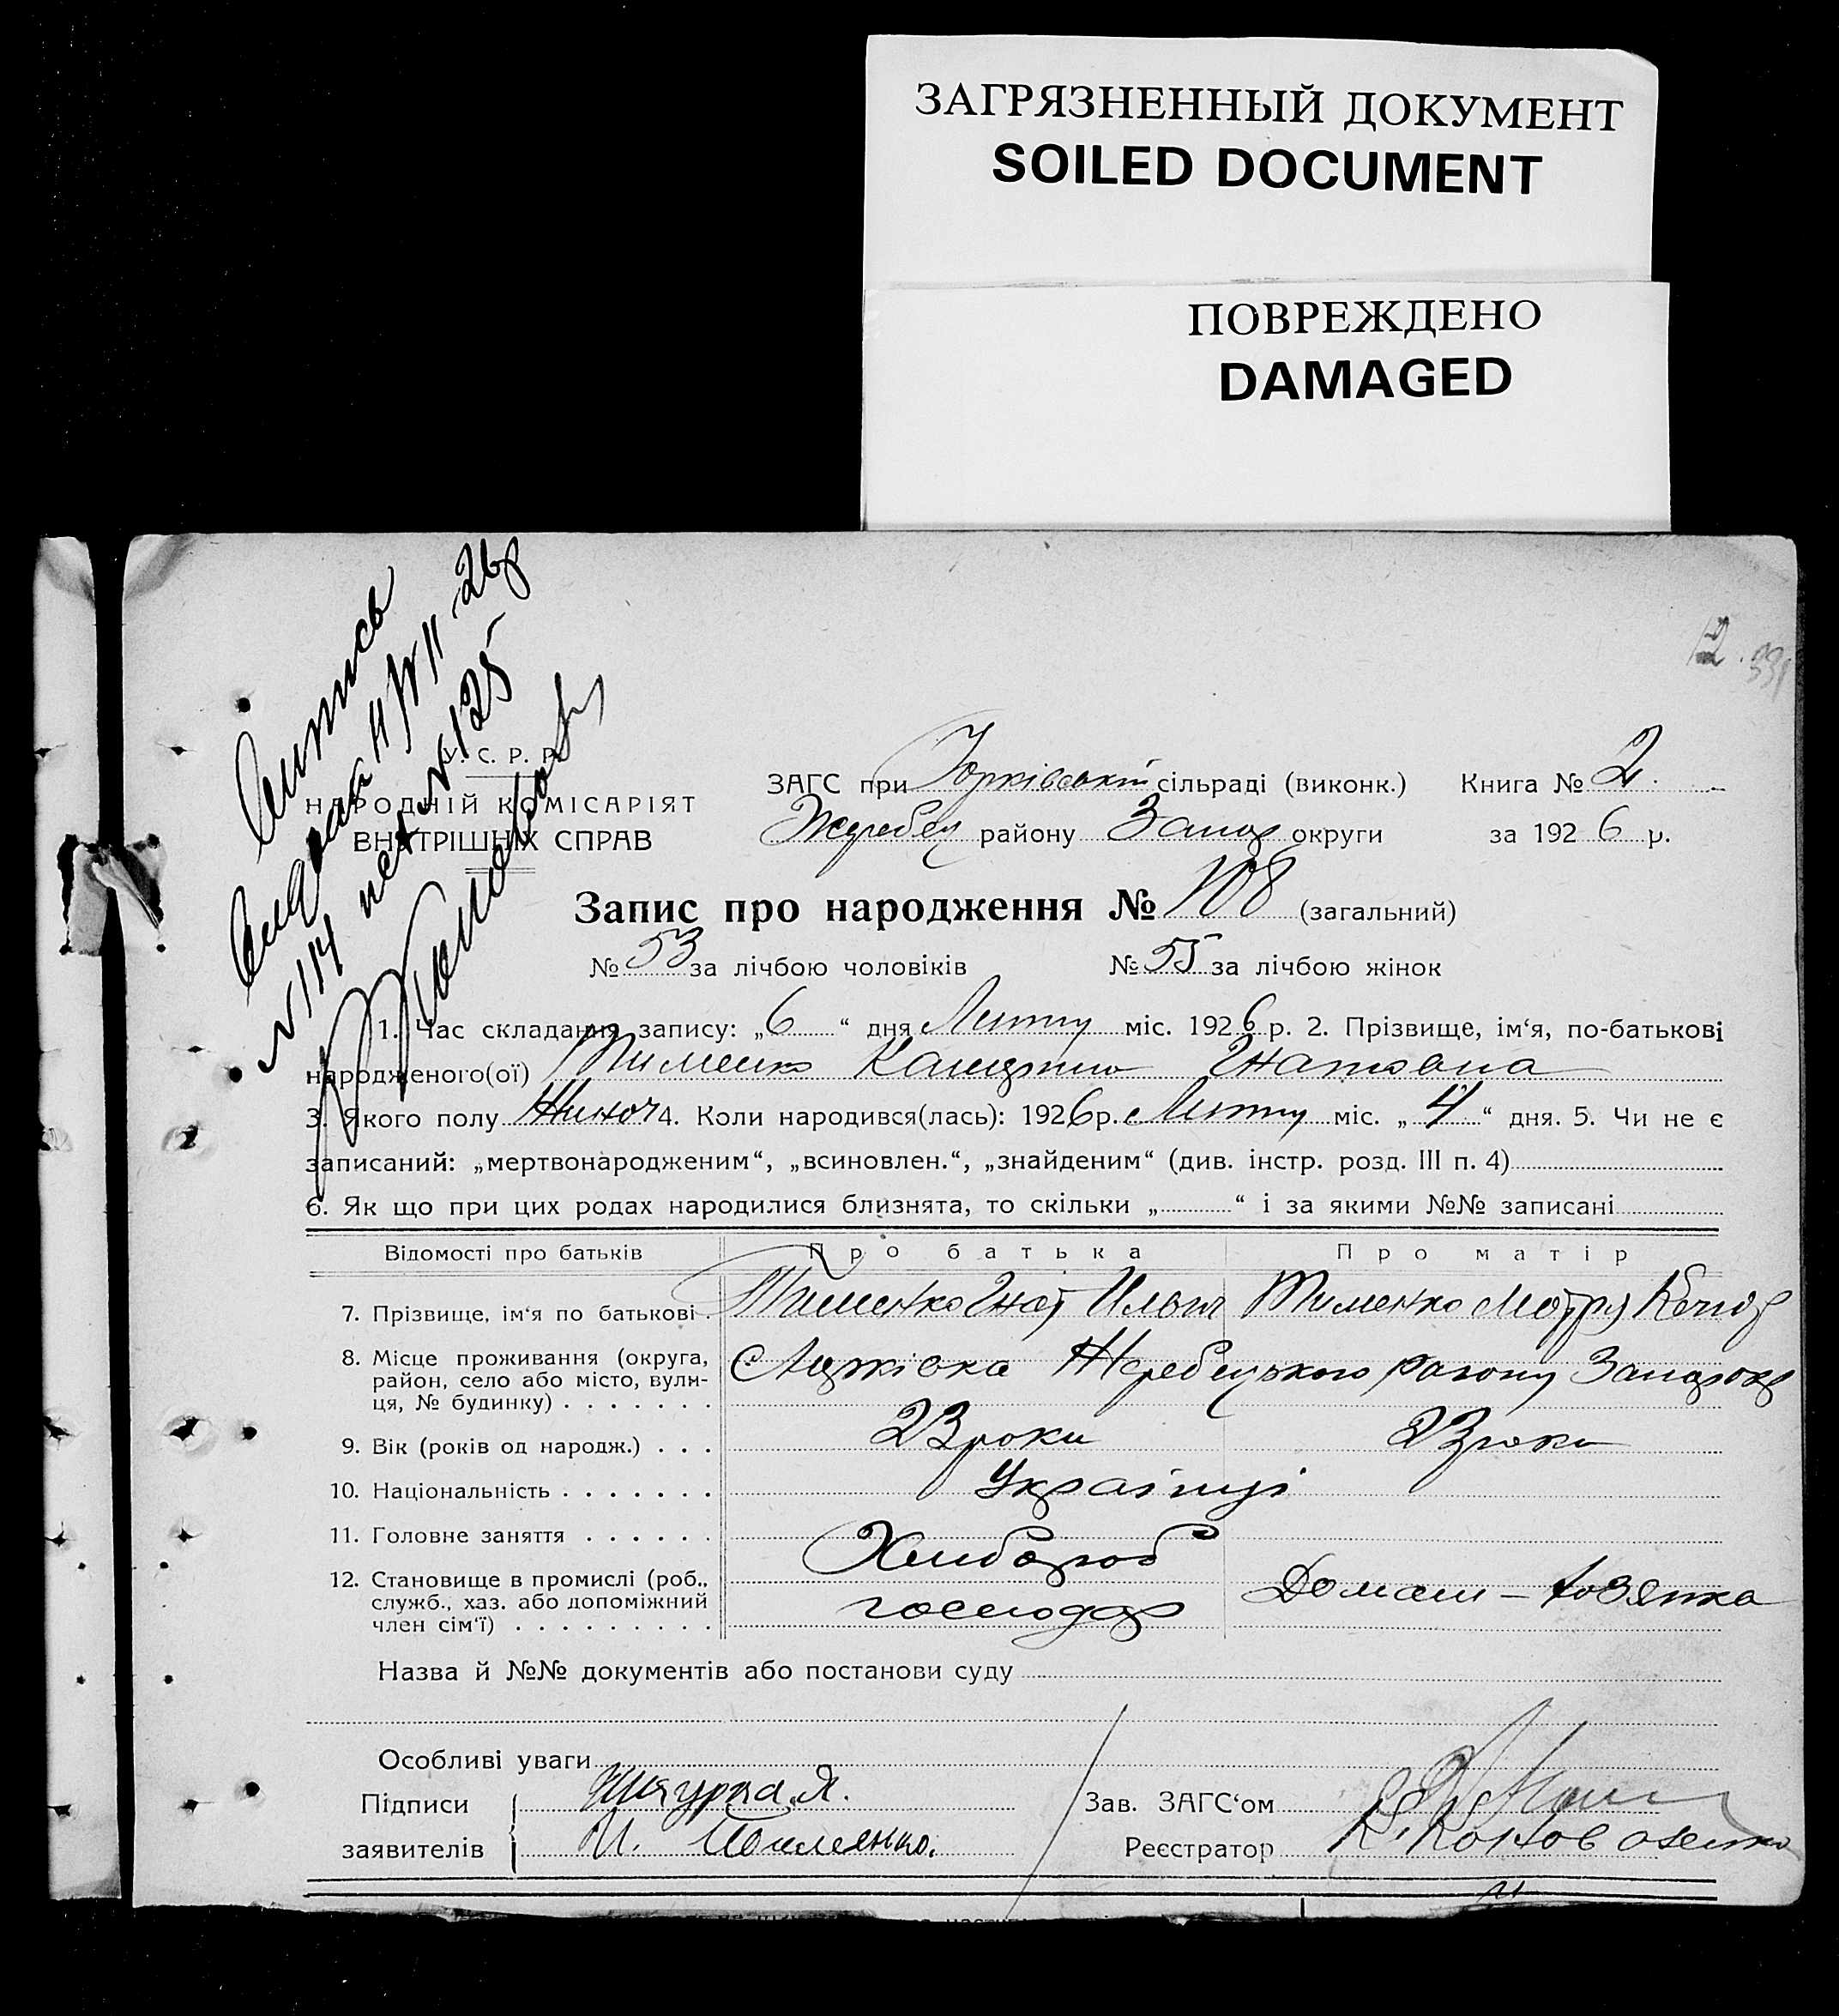 ЗАГРЯЗНЕННЫЙ ДОКУМЕНТ
SOILED DOCUMENT
ПОВРЕЖДЕНО
DAMAGED
12.
№ 114 № 125
У. С. Р. Р.
НАРОДНІЙ КОМІСАРІЯТ
ВНУТРІШНІХ СПРАВ
ЗАГС при Юрківській сільраді (виконк.) Книга № 2.
Жеребец району Запор округи за 1926 р.
Запис про народження № 108 (загальний)
№ 53 за лічбою чоловіків № 55 за лічбою жінок
1. Час складання запису: „6“ дня Липню міс. 1926 р. 2. Прізвище, ім‘я, по-батькові
народженого(ої) Тименко Гнатовна
3. Якого полу Жіноч 4. Коли народився(лась): 1926 р. Липню міс. „4“ дня. 5. Чи не є
записаний: „мертвонародженим“, „всиновлен.“, „знайденим“ (див. інстр. розд. III п. 4)
6. Як що при цих родах народилися близнята, то скільки „ “ і за якими №№ записані
Відомості про батьків Про батька Про матір
7. Прізвище, ім‘я по батькові. Тименко Гнат Ильич Тименко Мотря
8. Місце проживання (округа, район, село або місто, вулиця, № будинку) Жеребецького району
9. Вік (років од народж.) 23 роки 23 роки
10. Національність Українці
11. Головне заняття Хлібороб
12. Становище в промислі (роб., служб., хаз. або допоміжний член сім‘ї) господар Домаш – хозяйка
Назва й №№ документів або постанови суду
Особливі уваги
Підписи Шкурка Я. Зав. ЗАГС‘ом
заявителів И. Реєстратор К. Коноваленко